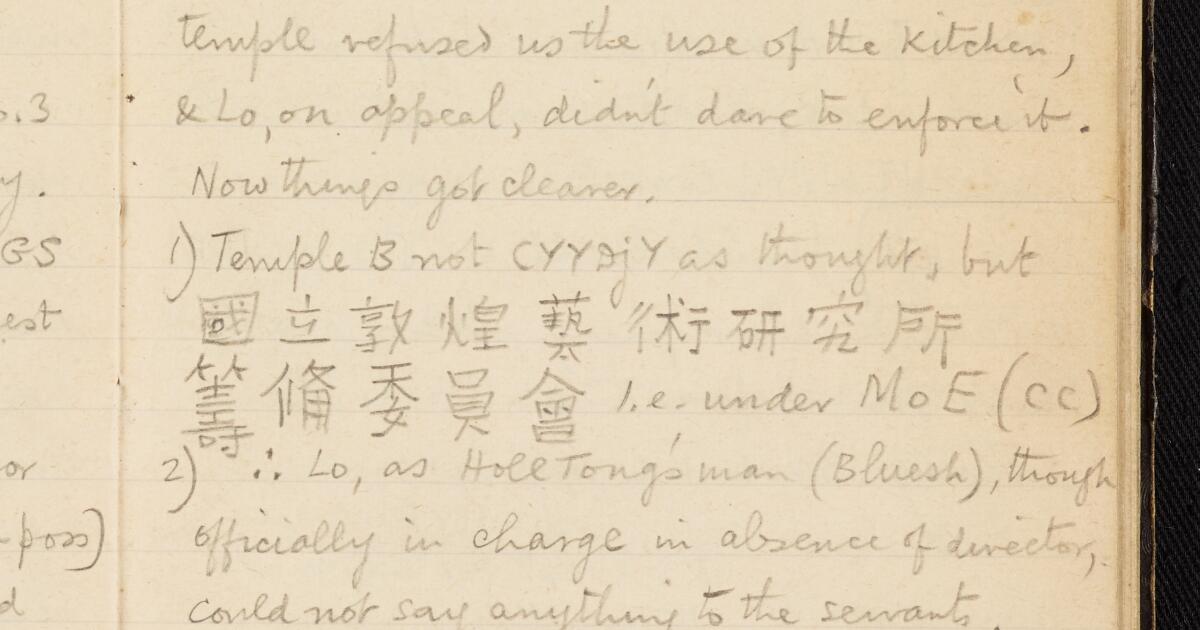 temple refused us the use of the kitchen,
o.3 & Lo, on appeal, didn't dare to enforce it.
y. Now things got clearer.
GS 1) Temple B not CYYDjY as thought, but
est 國立敦煌藝術研究所
籌備委員會 i.e. under MoE (CC)
or 2) ∴ Lo, as HollTong's man (Bluesh), though
poss) officially in charge in absence of director,
d could not say anything to the servants.